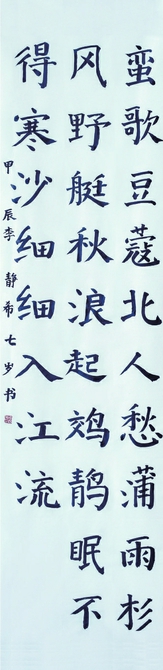 蛮歌豆蔻北人愁蒲雨杉
风野艇秋浪起鵁鶄眠不
得寒沙细细入江流
甲辰李静希七岁书